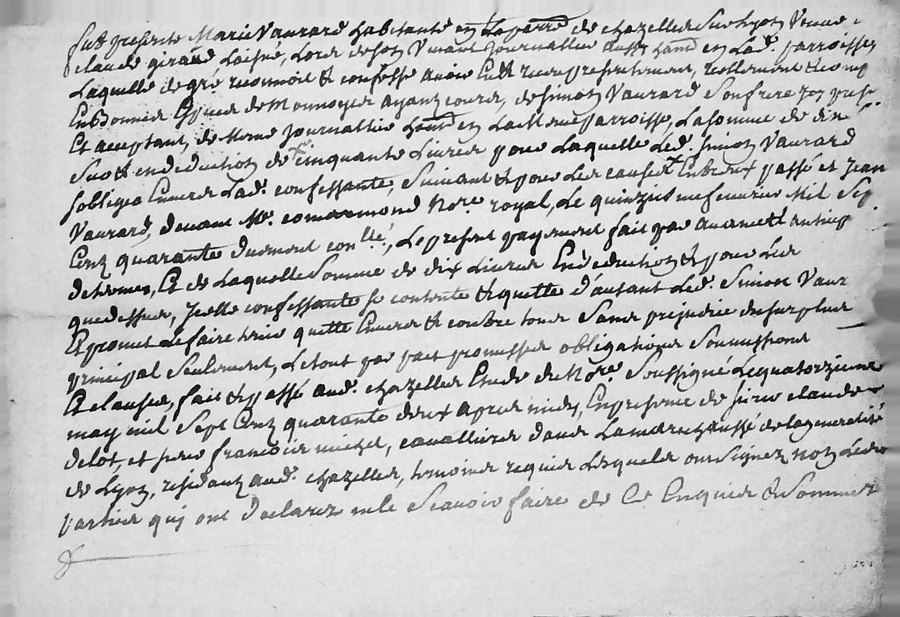 fut presente Marie Vaurard habitante en la parr.e de chazelles sur Lyon Veuve
claude giraud Laisné, Lors de son Vivant journallier en Lad. parroisse
Laquelle de gré reconnoit & confesse avoir Eu & receu presentement, reellement & comp
En bonnes Espèces de Monnoyes ayant cours, de Simon Vaurard son frere icy pres
Et acceptant, de Meme journallier en La Meme parroisse, La somme de dix
Sur & en deduction de cinquante Livres pour Laquelle Led. Simon Vaurard
sobligea Envers Lad. confessante, suivant & pour Les causes Entreux passé et jean
Vaurard, devant Me. comarmond No.re royal, Le quinzieme fevrier Mil Sep
Cent quarante duement con.llé, Le present payement fait par avance & anticip
de termes, Et de Laquelle Somme de dix Livres En deduction & pour Les
que dessus, Jcelle confessante se contente & quitte d'autant Led. Simon Vaur
Et promet Le faire tenir quitte Envers & contre tous Sans prejudice du surplus
principal Seulement, Le tout par pait promesses obligations Soumissions
Et clauses, fait & passé aud. chazelles Etude du No.re Soussigné Le quatorzieme
may mil Sept Cent quarante deux apres midy, En presence de sieur claude
delot, et sieur francois michel, cavalliers dans La marechaussé de la generalité
de Lyon, residant aud. chazelles, temoins requis Lesquels ont Signez non Lesd
parties quj ont declarez ne le Scavoir faire de Ce Enquis & Sommez